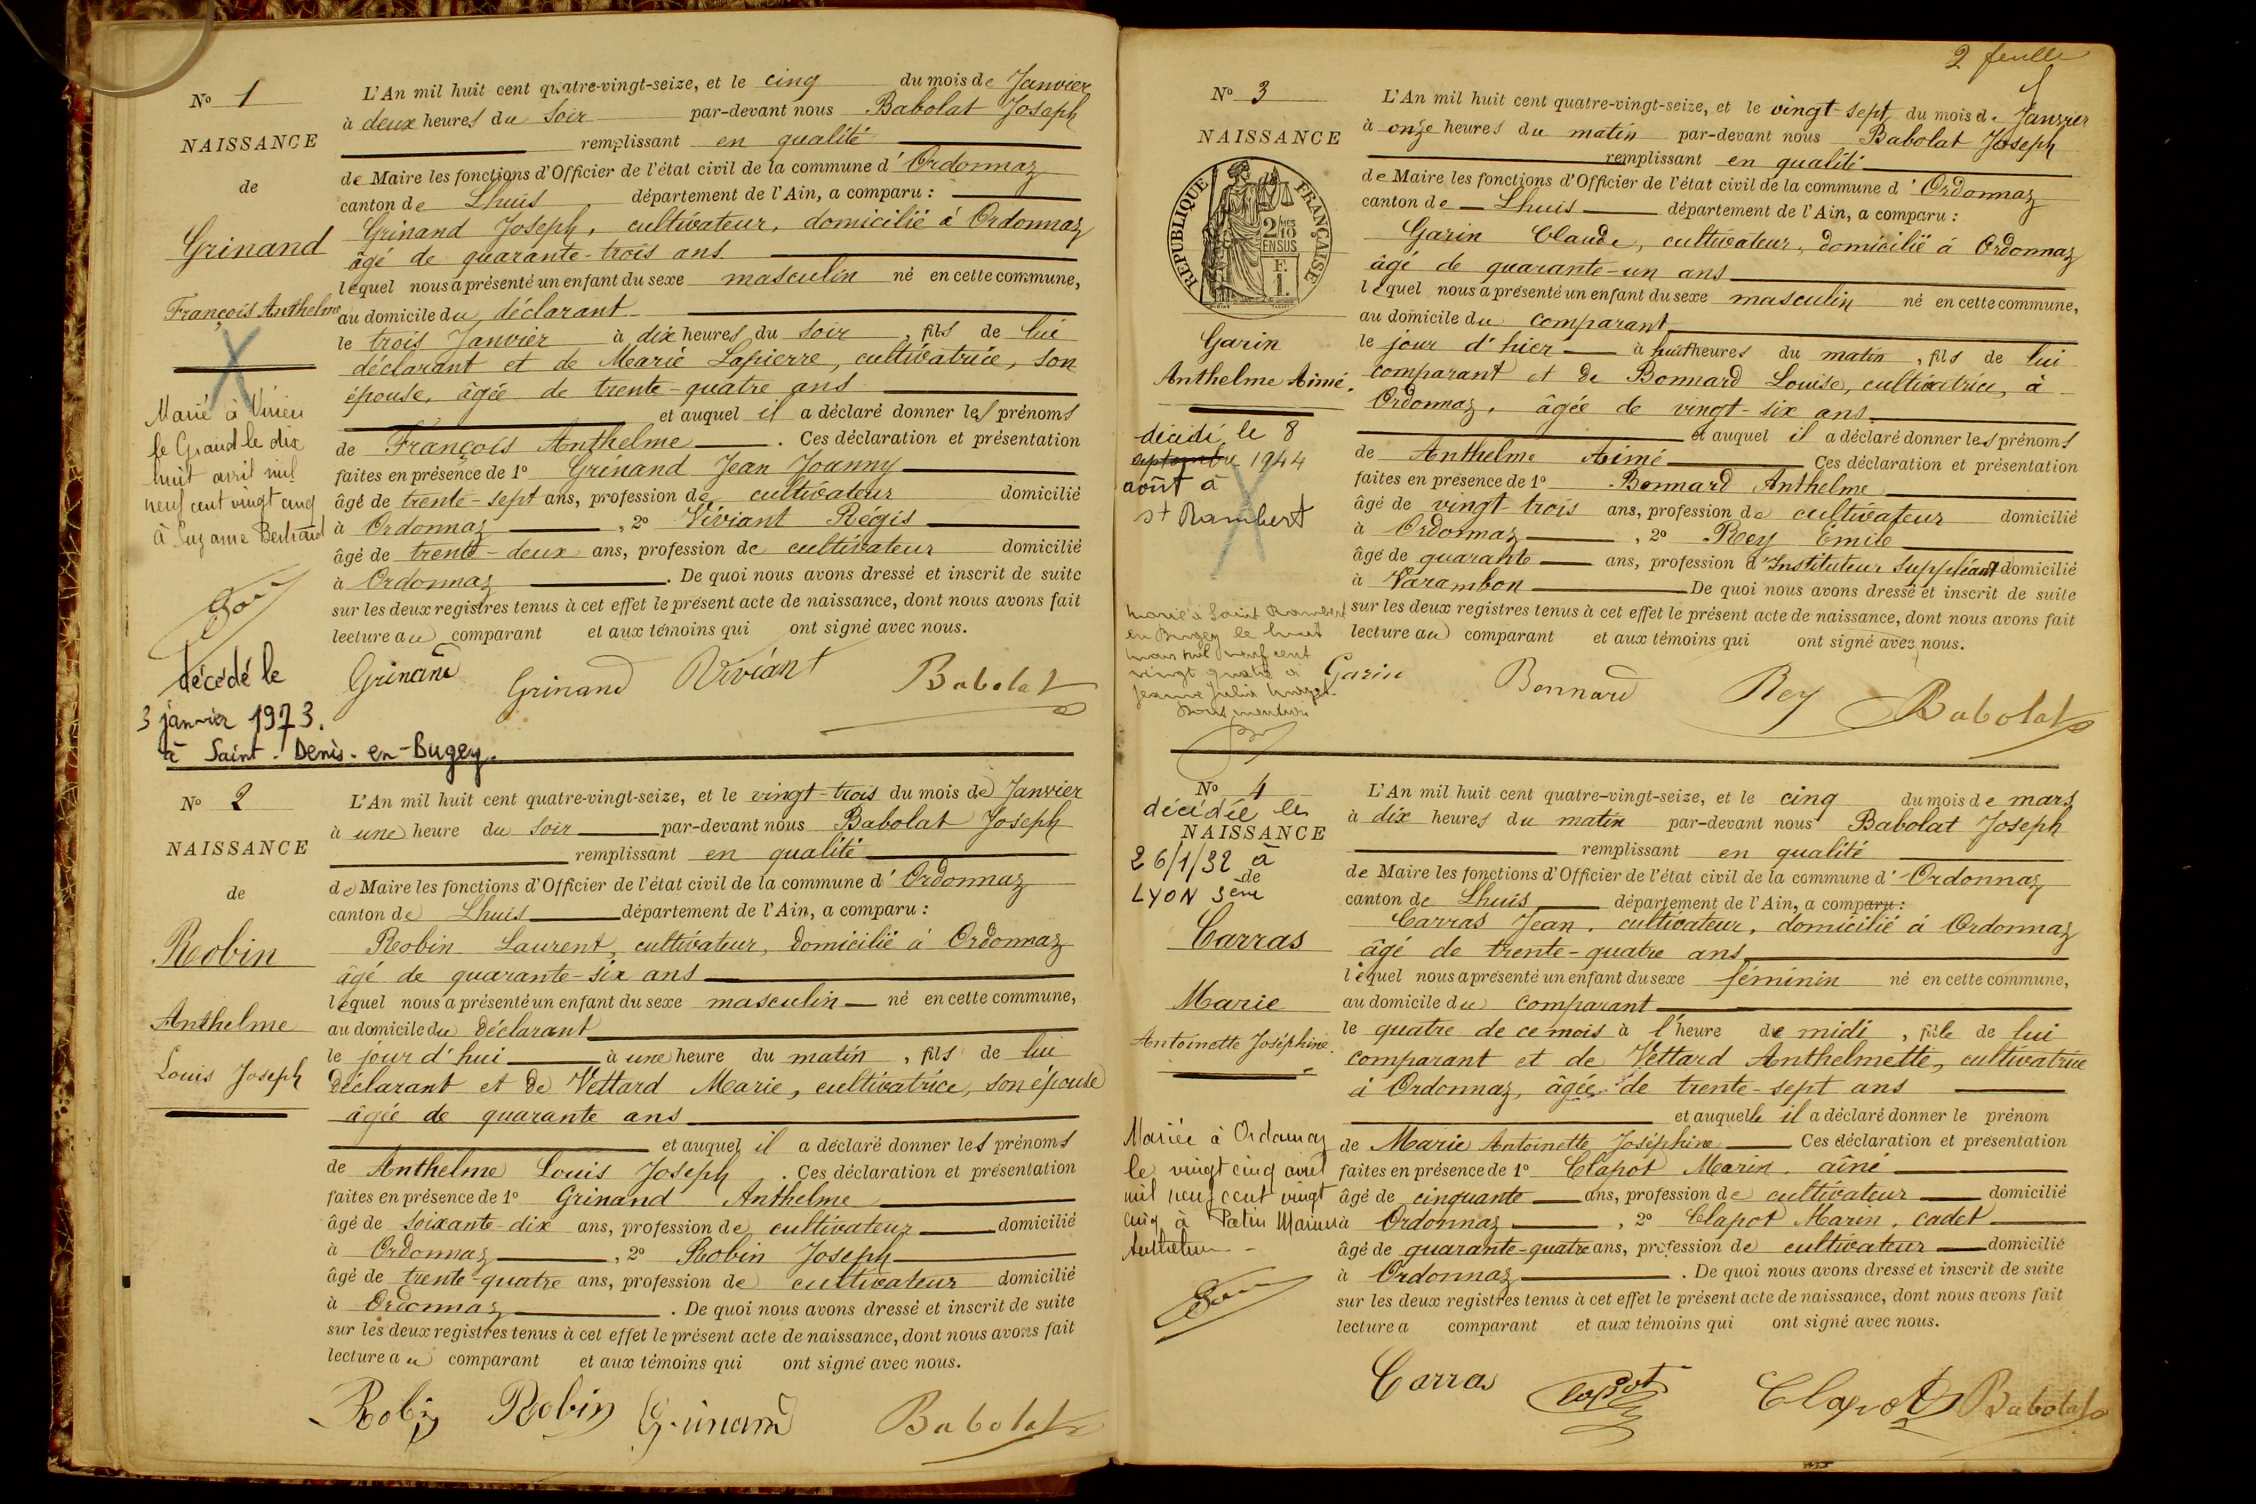 N° 1
NAISSANCE
de
Grinand
François Anthelme
Marié à Virieu
le Grand le dix
huit avril mil
neuf cent vingt cinq
à Suzanne Bertrand
décédé le
3 janvier 1973.
à Saint-Denis-en-Bugey.
L'An mil huit cent quatre-vingt-seize, et le cinq du mois de Janvier
à deux heures du soir par-devant nous Babolat Joseph
remplissant en qualité
de Maire les fonctions d'Officier de l'état civil de la commune d'Ordonnaz
canton de Lhuis département de l'Ain, a comparu :
Grinand Joseph, cultivateur, domicilié à Ordonnaz
âgé de quarante-trois ans.
lequel nous a présenté un enfant du sexe masculin né en cette commune,
au domicile du déclarant
le trois Janvier à dix heures du soir, fils de lui
déclarant et de Marie Lapierre, cultivatrice, son
épouse, âgée de trente-quatre ans
et auquel il a déclaré donner les prénoms
de François Anthelme. Ces déclaration et présentation
faites en présence de 1° Grinand Jean Joanny
âgé de trente-sept ans, profession de cultivateur domicilié
à Ordonnaz, 2° Viviant Régis
âgé de trente-deux ans, profession de cultivateur domicilié
à Ordonnaz. De quoi nous avons dressé et inscrit de suite
sur les deux registres tenus à cet effet le présent acte de naissance, dont nous avons fait
lecture au comparant et aux témoins qui ont signé avec nous.
Grinand Grinand Viviant Babolat
N° 2
NAISSANCE
de
Robin
Anthelme
Louis Joseph
L'An mil huit cent quatre-vingt-seize, et le vingt-trois du mois de Janvier
à une heure du soir par-devant nous Babolat Joseph
remplissant en qualité
de Maire les fonctions d'Officier de l'état civil de la commune d'Ordonnaz
canton de Lhuis département de l'Ain, a comparu :
Robin Laurent, cultivateur, domicilié à Ordonnaz
âgé de quarante-six ans
lequel nous a présenté un enfant du sexe masculin né en cette commune,
au domicile du déclarant
le jour d'hui à une heure du matin, fils de lui
déclarant et de Vettard Marie, cultivatrice, son épouse
âgée de quarante ans
et auquel il a déclaré donner les prénoms
de Anthelme Louis Joseph. Ces déclaration et présentation
faites en présence de 1° Grinand Anthelme
âgé de soixante-dix ans, profession de cultivateur domicilié
à Ordonnaz, 2° Robin Joseph
âgé de trente-quatre ans, profession de cultivateur domicilié
à Ordonnaz. De quoi nous avons dressé et inscrit de suite
sur les deux registres tenus à cet effet le présent acte de naissance, dont nous avons fait
lecture au comparant et aux témoins qui ont signé avec nous.
Robin Robin Grinand Babolat
2 feuille
N° 3
NAISSANCE
RÉPUBLIQUE FRANÇAISE
2/10
EN SUS
F.
1.
Garin
Anthelme Aimé.
décédé le 8
septembre 1944
août à
St Rambert
Marié à Saint Rambert
en Bugey le huit
mars mil neuf cent
vingt quatre à
Jeanne Julia
L'An mil huit cent quatre-vingt-seize, et le vingt-sept du mois de Janvier
à onze heures du matin par-devant nous Babolat Joseph
remplissant en qualité
de Maire les fonctions d'Officier de l'état civil de la commune d'Ordonnaz
canton de Lhuis département de l'Ain, a comparu :
Garin Claude, cultivateur, domicilié à Ordonnaz
âgé de quarante-un ans
lequel nous a présenté un enfant du sexe masculin né en cette commune,
au domicile du comparant
le jour d'hier à huit heures du matin, fils de lui
comparant et de Bonnard Louise, cultivatrice, à
Ordonnaz, âgée de vingt-six ans
et auquel il a déclaré donner les prénoms
de Anthelme Aimé Ces déclaration et présentation
faites en présence de 1° Bonnard Anthelme
âgé de vingt-trois ans, profession de cultivateur domicilié
à Ordonnaz, 2° Rey Émile
âgé de quarante ans, profession d'Instituteur suppléant domicilié
à Varambon De quoi nous avons dressé et inscrit de suite
sur les deux registres tenus à cet effet le présent acte de naissance, dont nous avons fait
lecture au comparant et aux témoins qui ont signé avec nous.
Garin Bonnard Rey Babolat
N° 4
décédée le
NAISSANCE
26/1/32 à
de
LYON 3ème
Carras
Marie
Antoinette Joséphine
Mariée à Ordonnaz
le vingt cinq avril
mil neuf cent vingt
cinq à Patin Marius
Anthelme
L'An mil huit cent quatre-vingt-seize, et le cinq du mois de mars
à dix heures du matin par-devant nous Babolat Joseph
remplissant en qualité
de Maire les fonctions d'Officier de l'état civil de la commune d'Ordonnaz
canton de Lhuis département de l'Ain, a comparu :
Carras Jean, cultivateur, domicilié à Ordonnaz
âgé de trente-quatre ans
lequel nous a présenté un enfant du sexe féminin né en cette commune,
au domicile du comparant
le quatre de ce mois à l'heure de midi, fille de lui
comparant et de Vettard Anthelmette, cultivatrice
à Ordonnaz, âgée de trente-sept ans
et auquelle il a déclaré donner le prénom
de Marie Antoinette Joséphine Ces déclaration et présentation
faites en présence de 1° Clapot Marin, aîné
âgé de cinquante ans, profession de cultivateur domicilié
à Ordonnaz, 2° Clapot Marin, cadet
âgé de quarante-quatre ans, profession de cultivateur domicilié
à Ordonnaz. De quoi nous avons dressé et inscrit de suite
sur les deux registres tenus à cet effet le présent acte de naissance, dont nous avons fait
lecture a comparant et aux témoins qui ont signé avec nous.
Carras Clapot Clapot Babolat